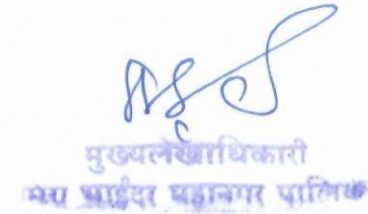 मुख्यलेखाधिकारी
भाईंदर महानगर पालिका